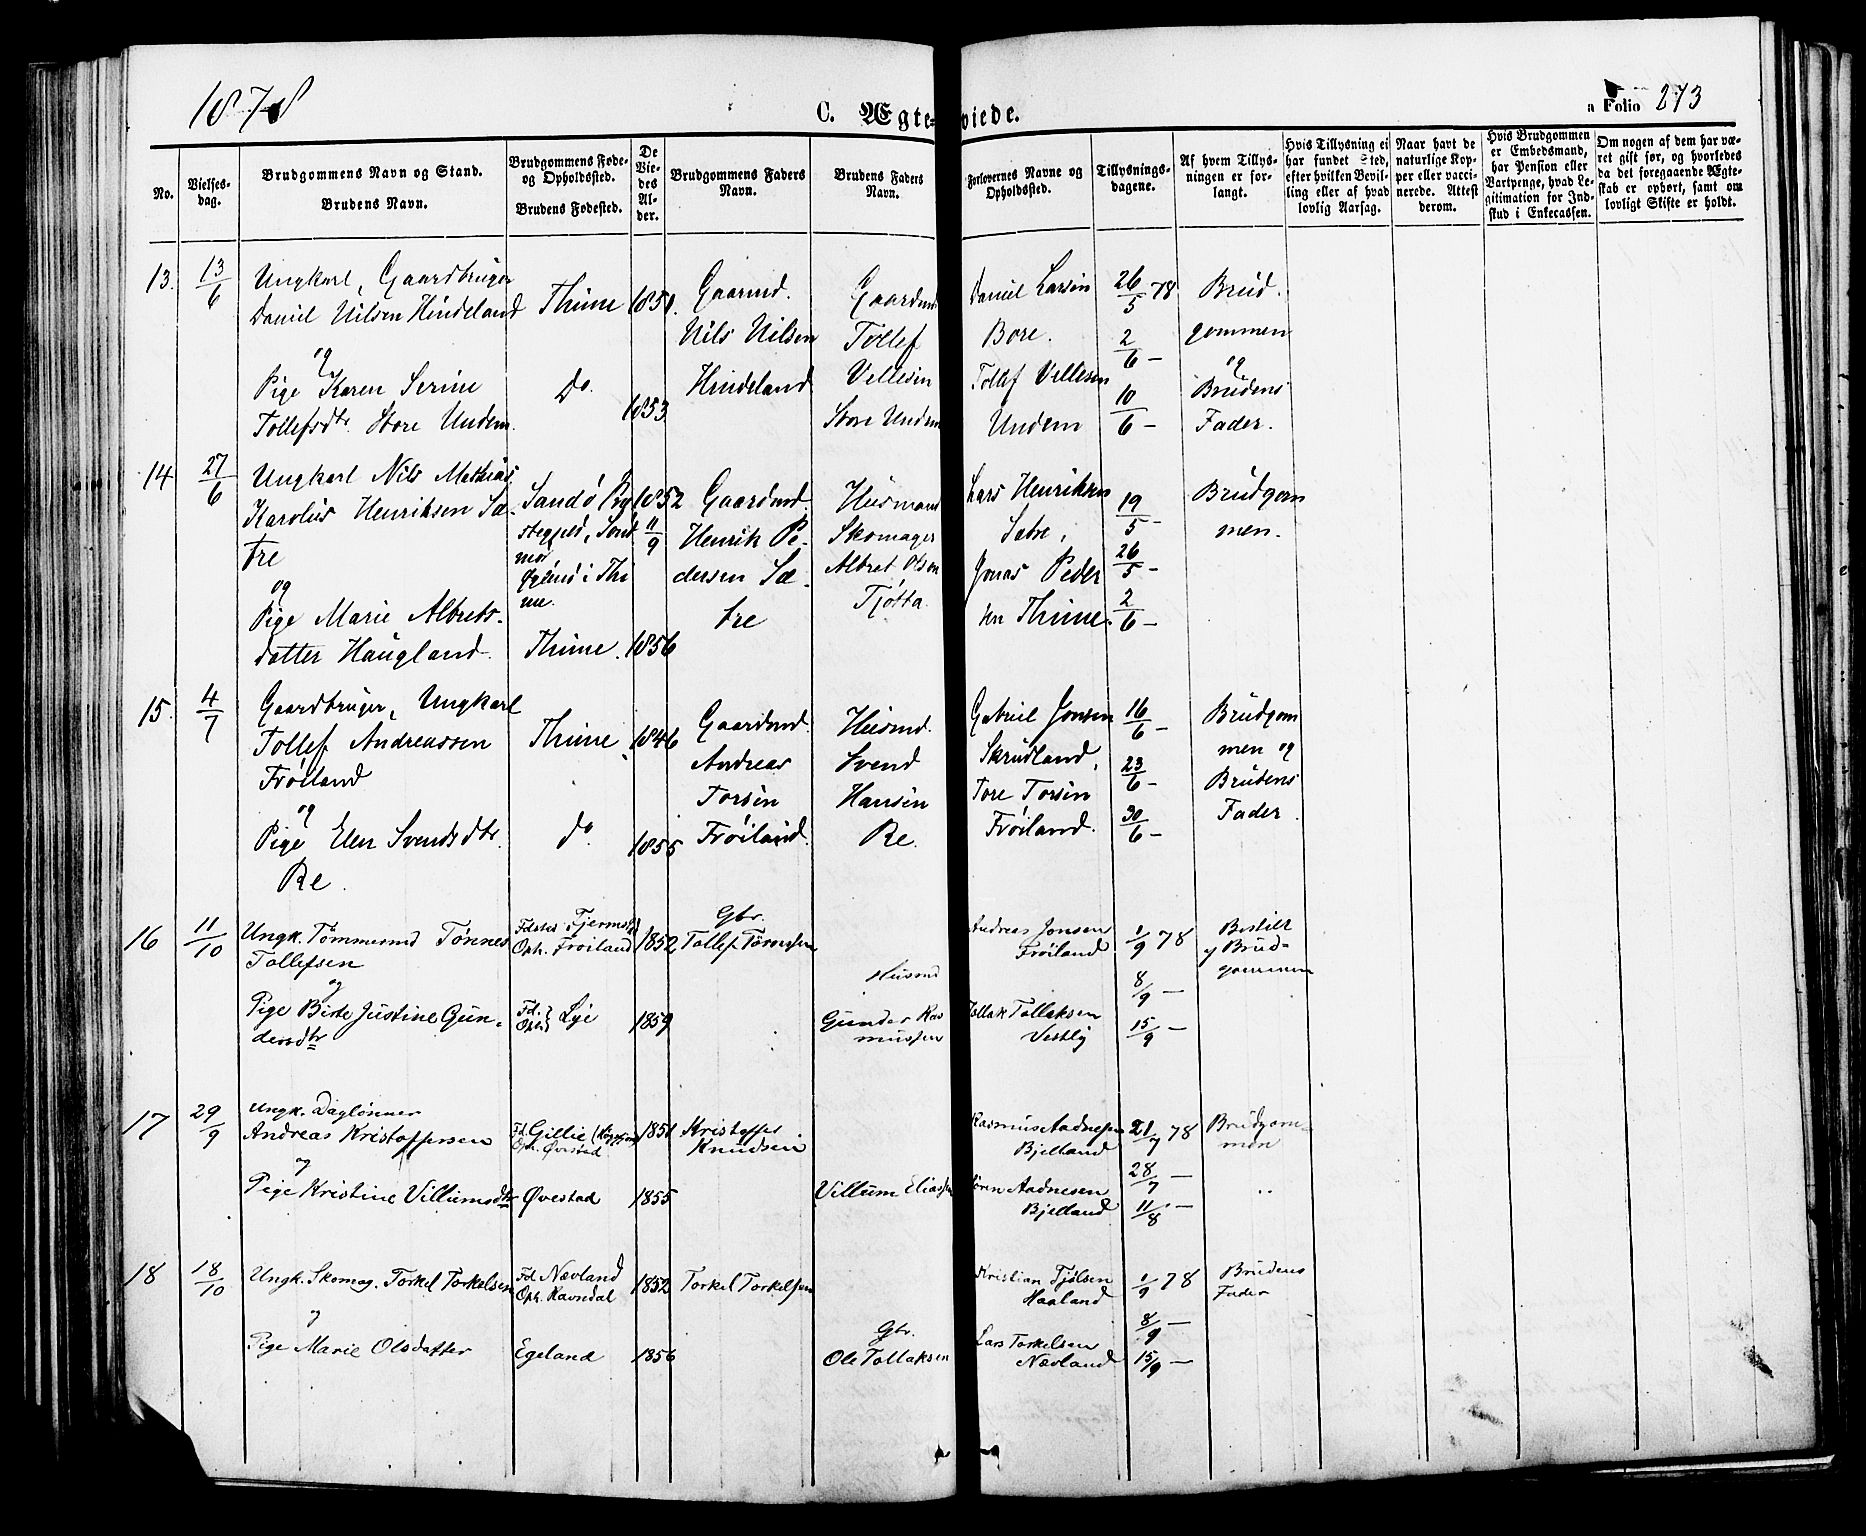 1878
C. Ægteviede.
a Folio 273
No.
Vielses-
dag.
Brudgommens Navn og Stand.
Brudens Navn.
Brudgommens Føde-
og Opholdssted.
Brudens Fødested.
De
Vie-
des
Al-
der.
Brudgommens Faders
Navn.
Brudens Faders
Navn.
Forlovernes Navne og
Opholdssted.
Tillysnings-
dagene.
Af hvem Tillys-
ningen er for-
langt.
Hvis Tillysning ei
har fundet Sted,
efter hvilken Bevil-
ling eller af hvad
lovlig Aarsag.
Naar havt de
naturlige Kop-
per eller vacci-
nerede. Attest
derom.
Hvis Brudgommen
er Embedsmand,
har Pension eller
Vartpenge, hvad Le-
gitimation for Ind-
skud i Enkecassen.
Om nogen af dem har væ-
ret gift før, og hvorledes
da det foregaaende Ægte-
skab er ophørt, samt om
lovligt Skifte er holdt.
13.
13/6
Ungkarl, Gaardbruger
Daniel Nilsen Hindeland
og
Pige Karen Serine
Tollefsdtr. Store Undem.
Thime
Do.
1851.
1853
Gaarmd.
Nils Nilsen
Hindeland
Gaardmd
Tollef
Vellesen
Store Undem
Daniel Larsen
Bore.
Tollef Vellesen
Undem
26/5 78
2/6 —
10/6 —
Brud.
gommen
og
Brudens
Fader.
14
27/6
Ungkarl Nils Mathias
Karolius Henriksen Sæ-
tre
og
Pige Marie Albrets-
datter Haugland.
Sandø
Thime.
1852
11/9
1856
Gaardmd.
Henrik Pe-
dersen Sæ-
tre
Husmand
Skomager
Albret Olsen
Tjøtta.
Lars Henriksen
Satre,
Jonas Peder
sen Thime.
19/5 —
26/5 —
2/6 —
Brudgom
men.
15.
4/7
Gaardbruger, Ungkarl
Tollef Andreassen
Frøiland
og
Pige Elen Svendsdtr.
Re.
Thime
Do
1846
1855
Gaardmd.
Andreas
Torsen
Frøiland.
Husmd.
Svend
Hansen
Re.
Gabriel Jonsen
Skrudland,
Tore Torsen
Frøiland.
16/6 —
23/6 —
30/6 —
Brudgom
men og
Brudens
Fader.
16
11/10
Ungk. Tømmermd Tønnes
Tollefsen
og
Pige Birte Justine Gun-
dersdtr
Oph. Frøiland
Fd. Lye
1852
1859
Gbr.
Tollef Tønnesen
Husmd
Gunder Ras
mussen
Andreas Jonsen
Frøiland
Tollak Tollaksen
Vestly
1/9 78
8/9 —
15/9 —
Bestilt
af Brud-
gommen
17
29/9
Ungk. Daglønner
Andreas Kristoffersen
og
Pige Kristine Villumsdtr
Fd. Gillie
Oph. Øvestad
Øvestad
1851
1855
Kristoffer
Knudsen
Villum Eliassen
Rasmus Aadnesen
Bjelland
Søren Aadnesen
Bjelland
21/7 78
28/7 —
11/8 —
Brudgom-
men
..
18
18/10
Ungk. Skomag. Torkel Torkelsen
og
Pige Marie Olsdatter
Fd. Nævland
Oph. Ravndal
Egeland
1852
1856
Torkel Torkelsen
Gbr.
Ole Tollaksen
Kristian Tjølsen
Haaland
Lars Torkelsen
Nævland
1/9 78
8/9 —
15/9 —
Brudens
Fader